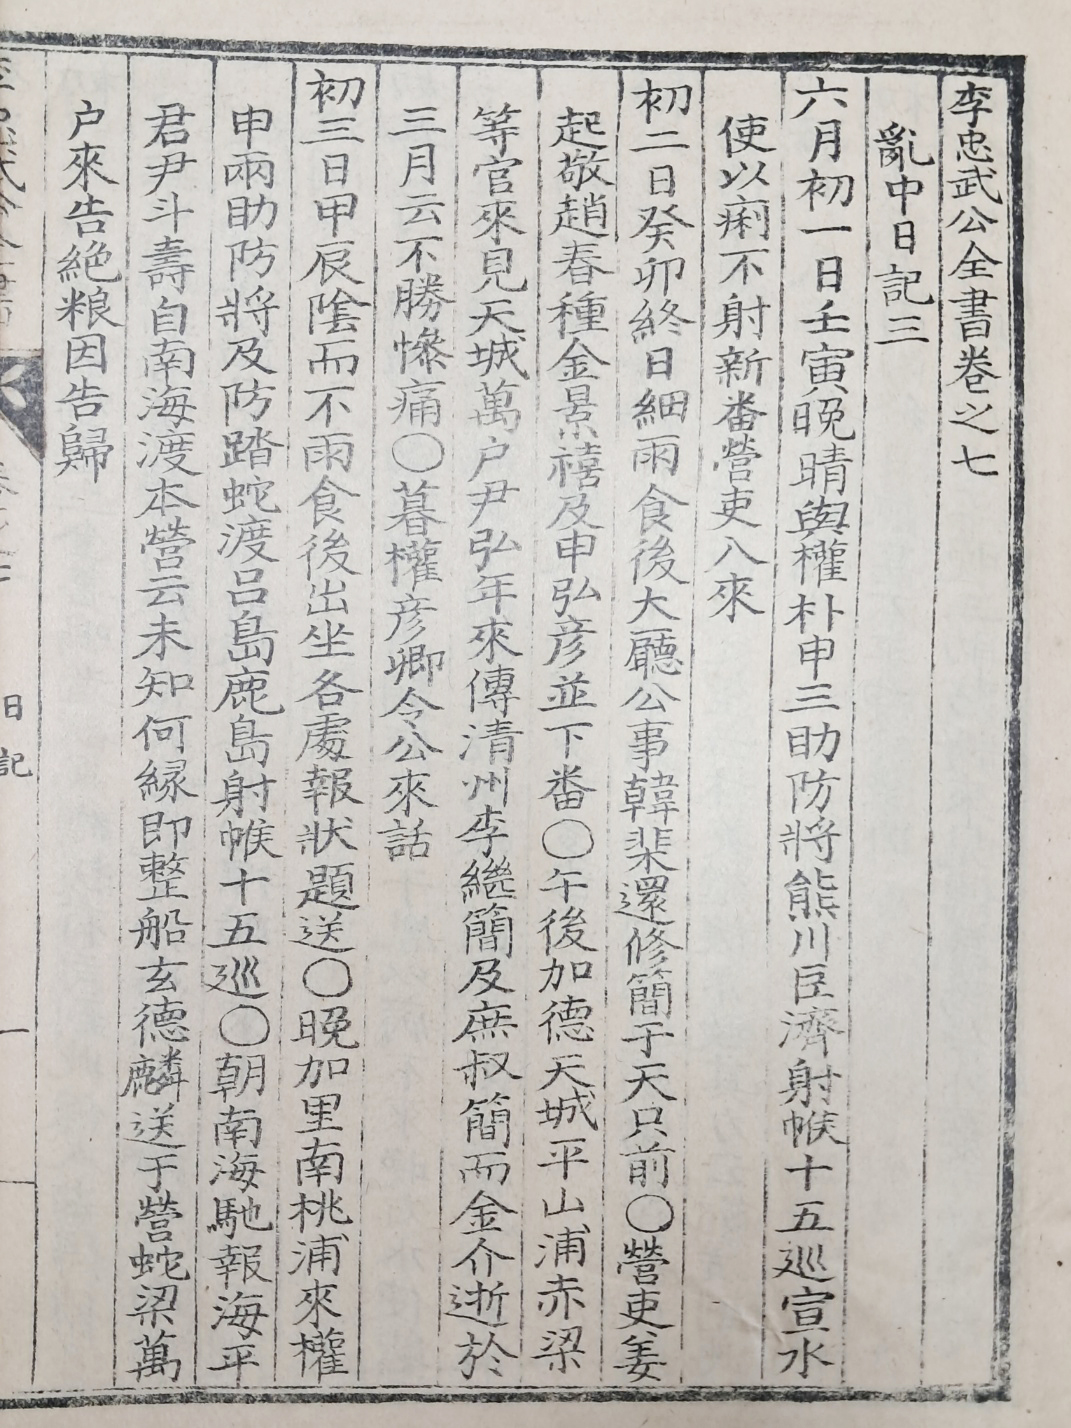 李忠武公全書卷之七
亂中日記三
六月初一日壬寅晚晴與權朴申三助防將熊川巨濟射帿十五巡宣水
使以痢不射新番營吏入來
初二日癸卯終日細雨食後大廳公事韓棐還修簡于天只前〇營吏姜
起敬趙春種金景禧及申弘彦並下番〇午後加德天城平山浦赤梁
等官來見天城萬户尹弘年來傳清州李繼簡及庶叔簡而金介逝於
三月云不勝慘痛〇暮權彦卿令公來話
初三日甲辰陰而不雨食後出坐各處報狀題送〇晚加里南桃浦來權
申兩助防將及防踏蛇渡呂島鹿島射帿十五巡〇朝南海馳報海平
君尹斗壽自南海渡本營云未知何緣即整船玄德麟送于營蛇梁萬
户來告絶粮因告歸
日記
一